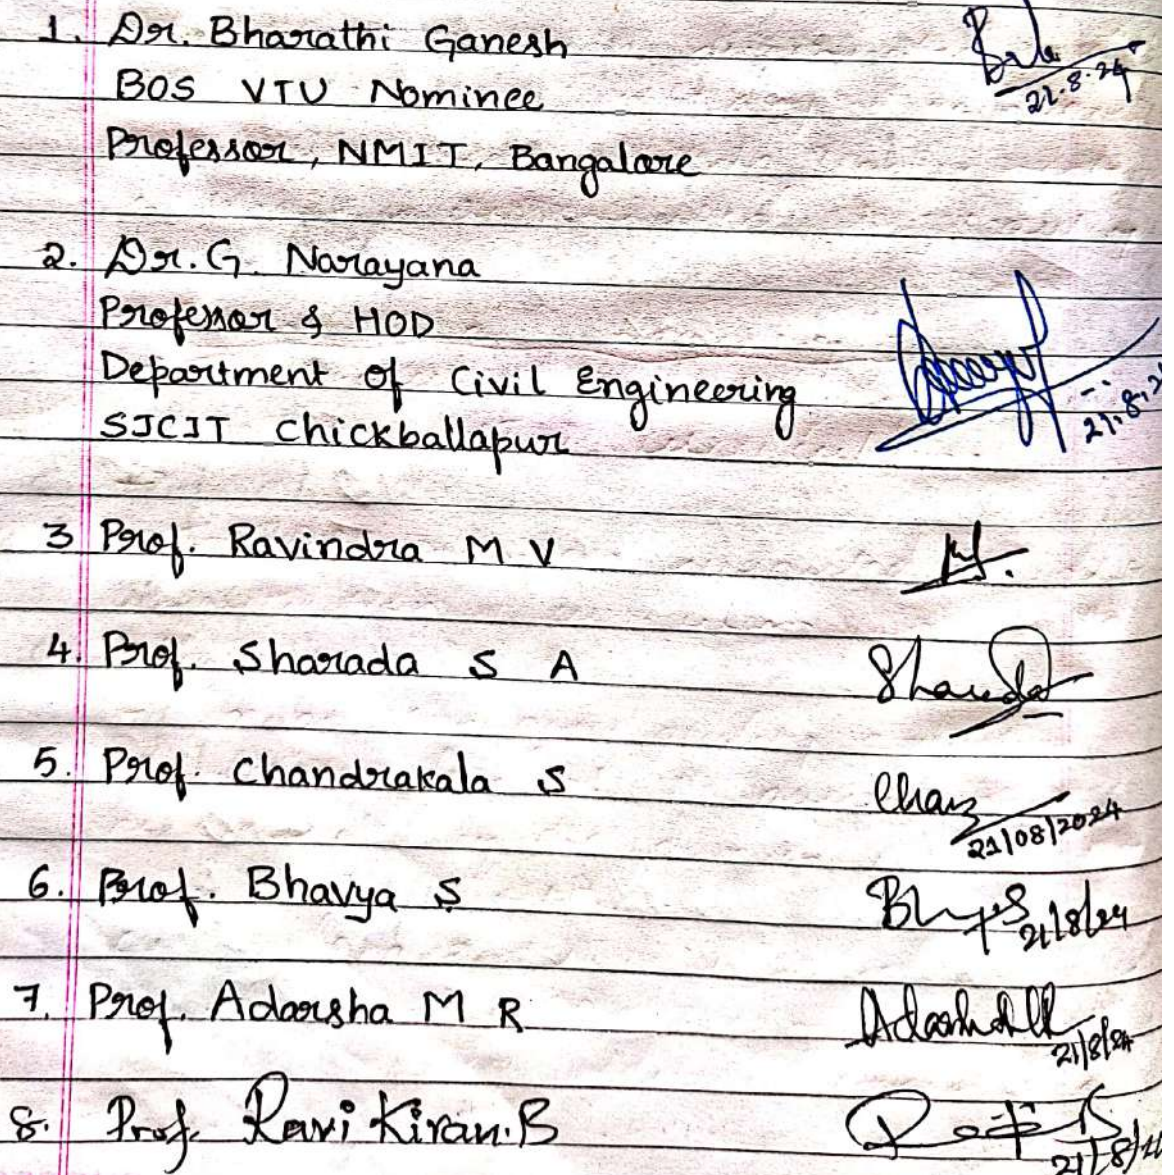 1. Dr. Bharathi Ganesh
21.8.24
BOS VTU Nominee
Professor, NMIT, Bangalore
2. Dr. G. Narayana
Professor & HOD
Department of Civil Engineering
21.8.2
SJCIT Chickballapur
3 Prof. Ravindra M V
4. Prof. Sharada S A Sharada
5. Prof. Chandrakala S
21/08/2024
6. Prof. Bhavya S
21/8/24
7. Prof. Adarsha M R
21/8/24
8. Prof. Ravi Kiran. B